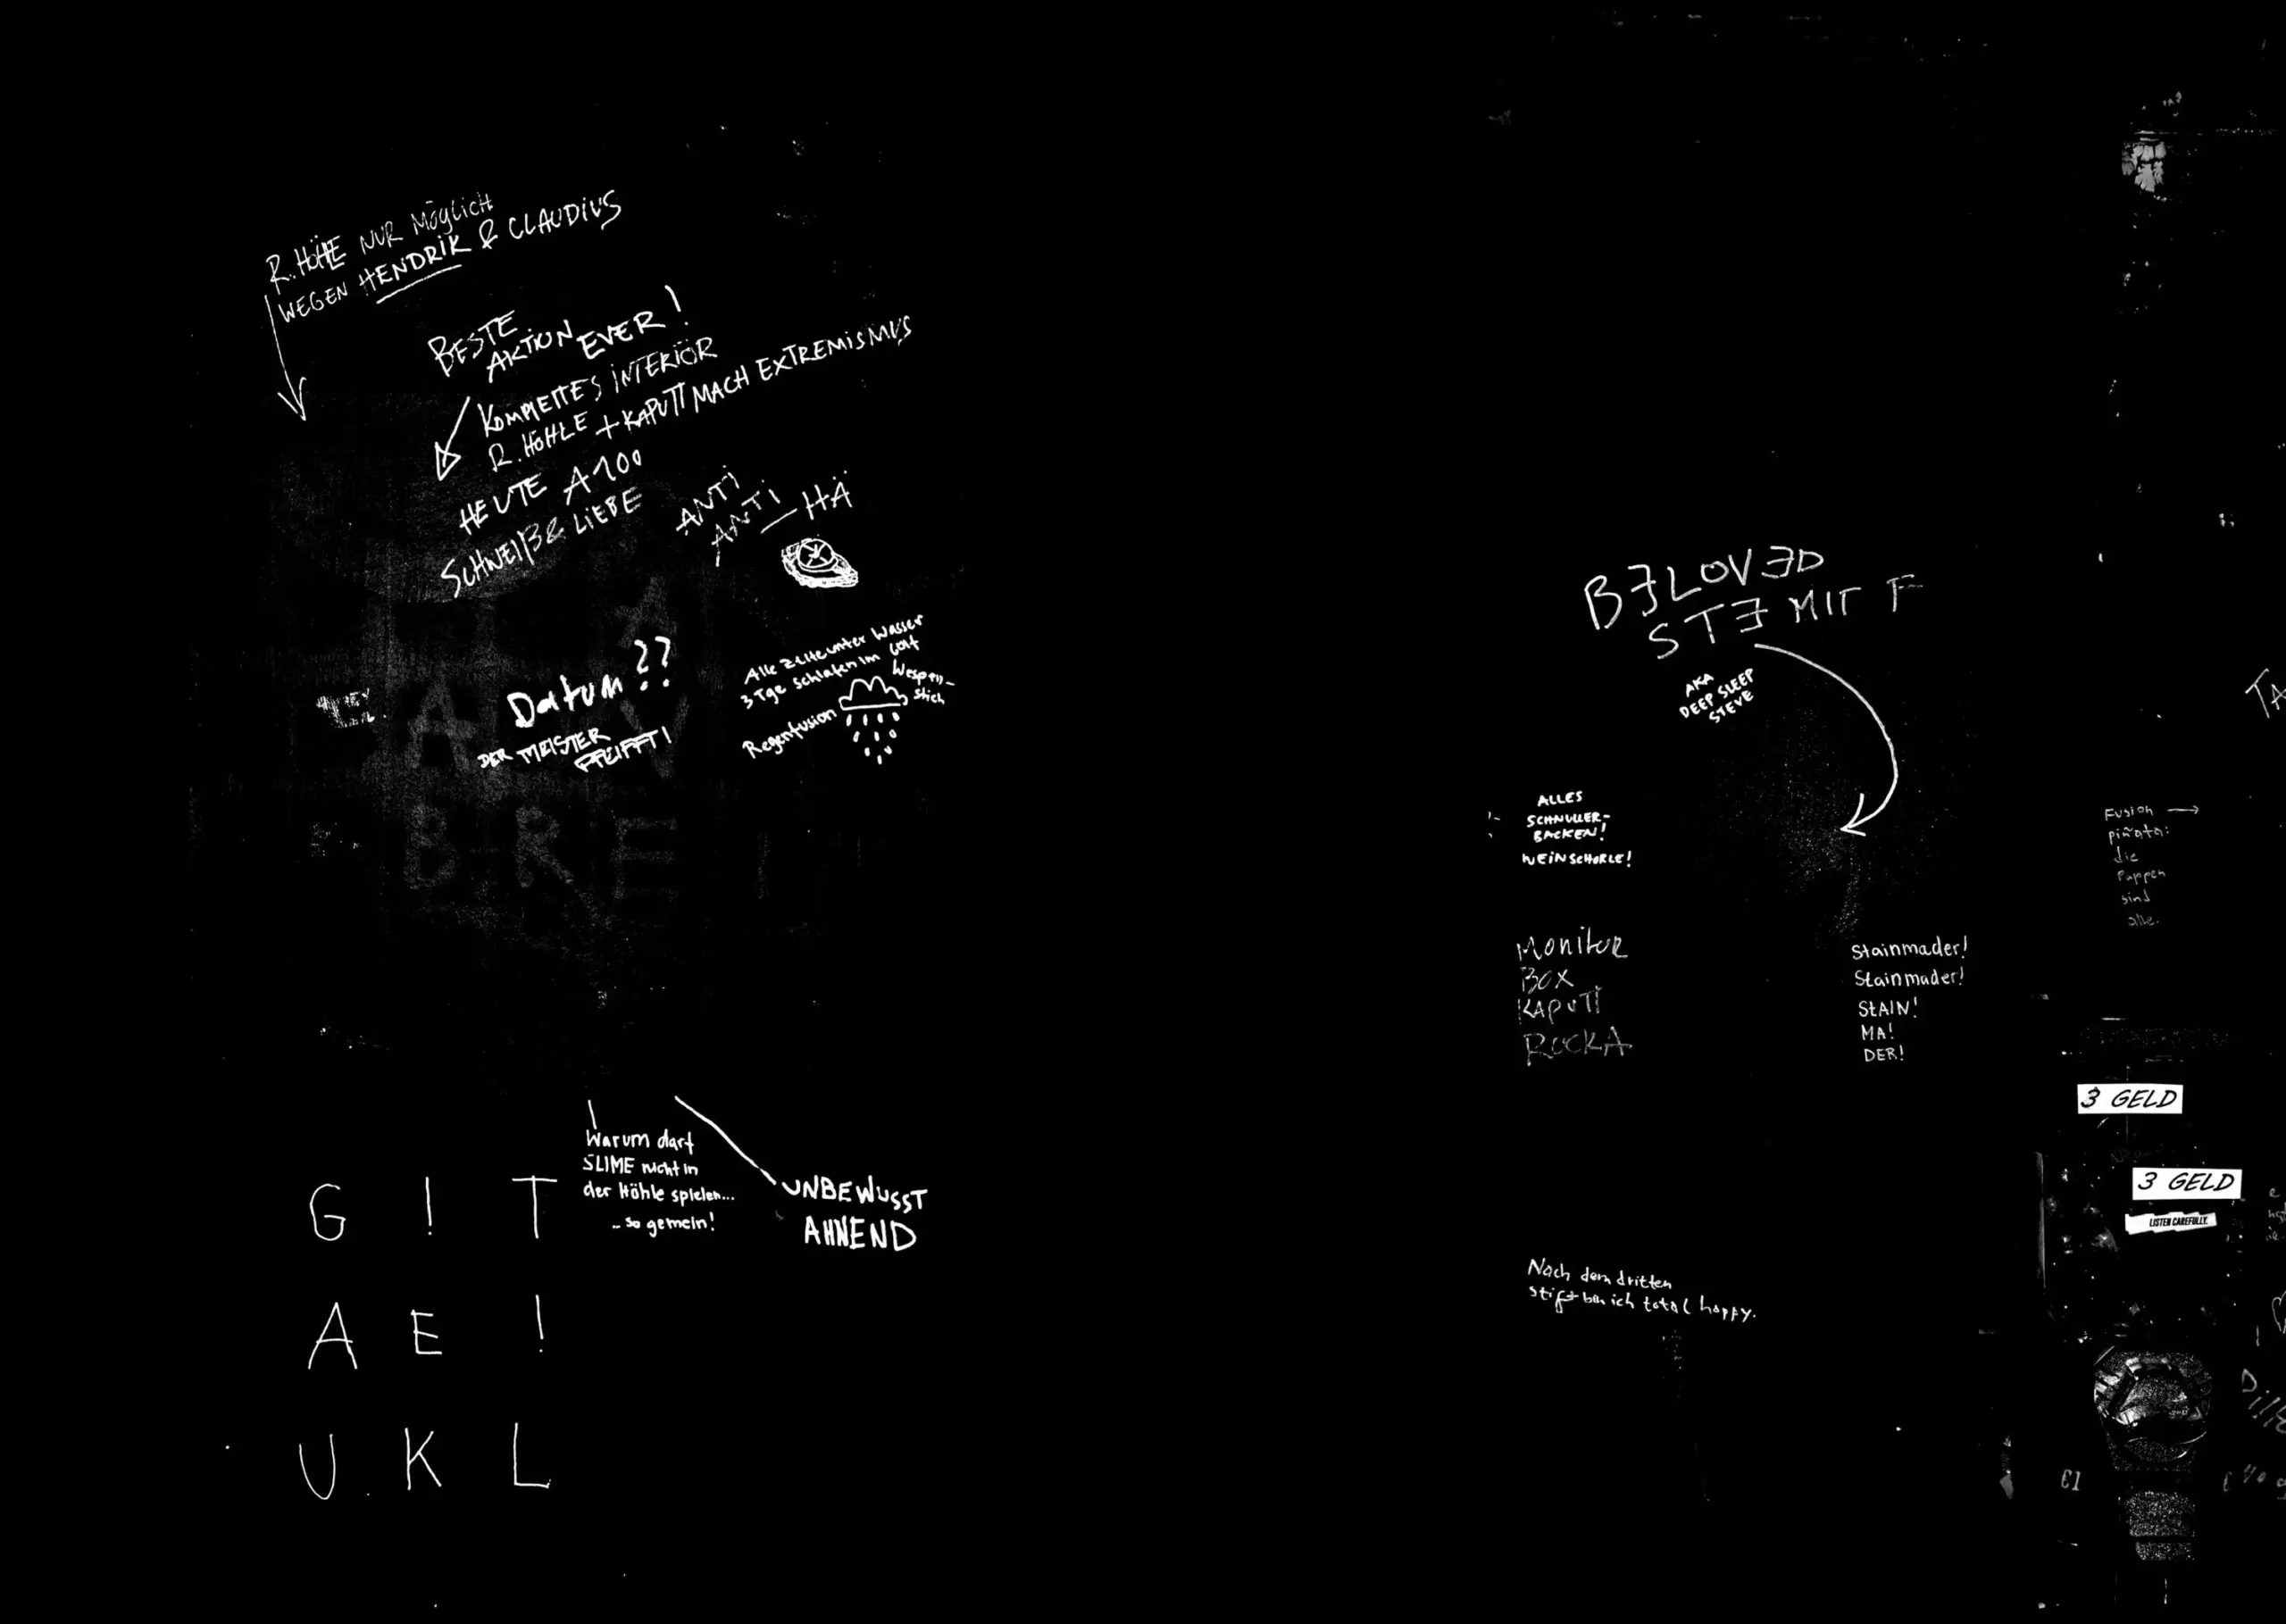 R. HÖHLE NUR MÖGLICH
WEGEN HENDRIK & CLAUDIUS
BESTE
AKTION EVER!
KOMPLETTES INTERIÖR
R. HÖHLE + KAPUTT MACH EXTREMISMUS
HEUTE A100
SCHWEIß & LIEBE
ANTI
ANTI — HÄ
Datum??
DER MEISTER
PFEIFFT!
Alle Zelte unter Wasser
3 Tge schlafen im
Wespen-
stich
Regenfusion
BRE
Warum darf
SLIME nicht in
der Höhle spielen...
.. so gemein!
UNBEWUSST
AHNEND
G ! T
A E !
U . K L
BELOVED
STE MIT F
AKA
DEEP SLEEP
STEVE
ALLES
SCHNULLER-
BACKEN!
WEINSCHORLE!
Monitor
BOX
KAPUTT
ROCKA
Stainmader!
Stainmader!
StAIN!
MA!
DER!
Nach dem dritten
Stift bin ich total happy.
Fusion →
piñata:
die
Pappen
sind
alle.
3 GELD
3 GELD
LISTEN CAREFULLY.
TA